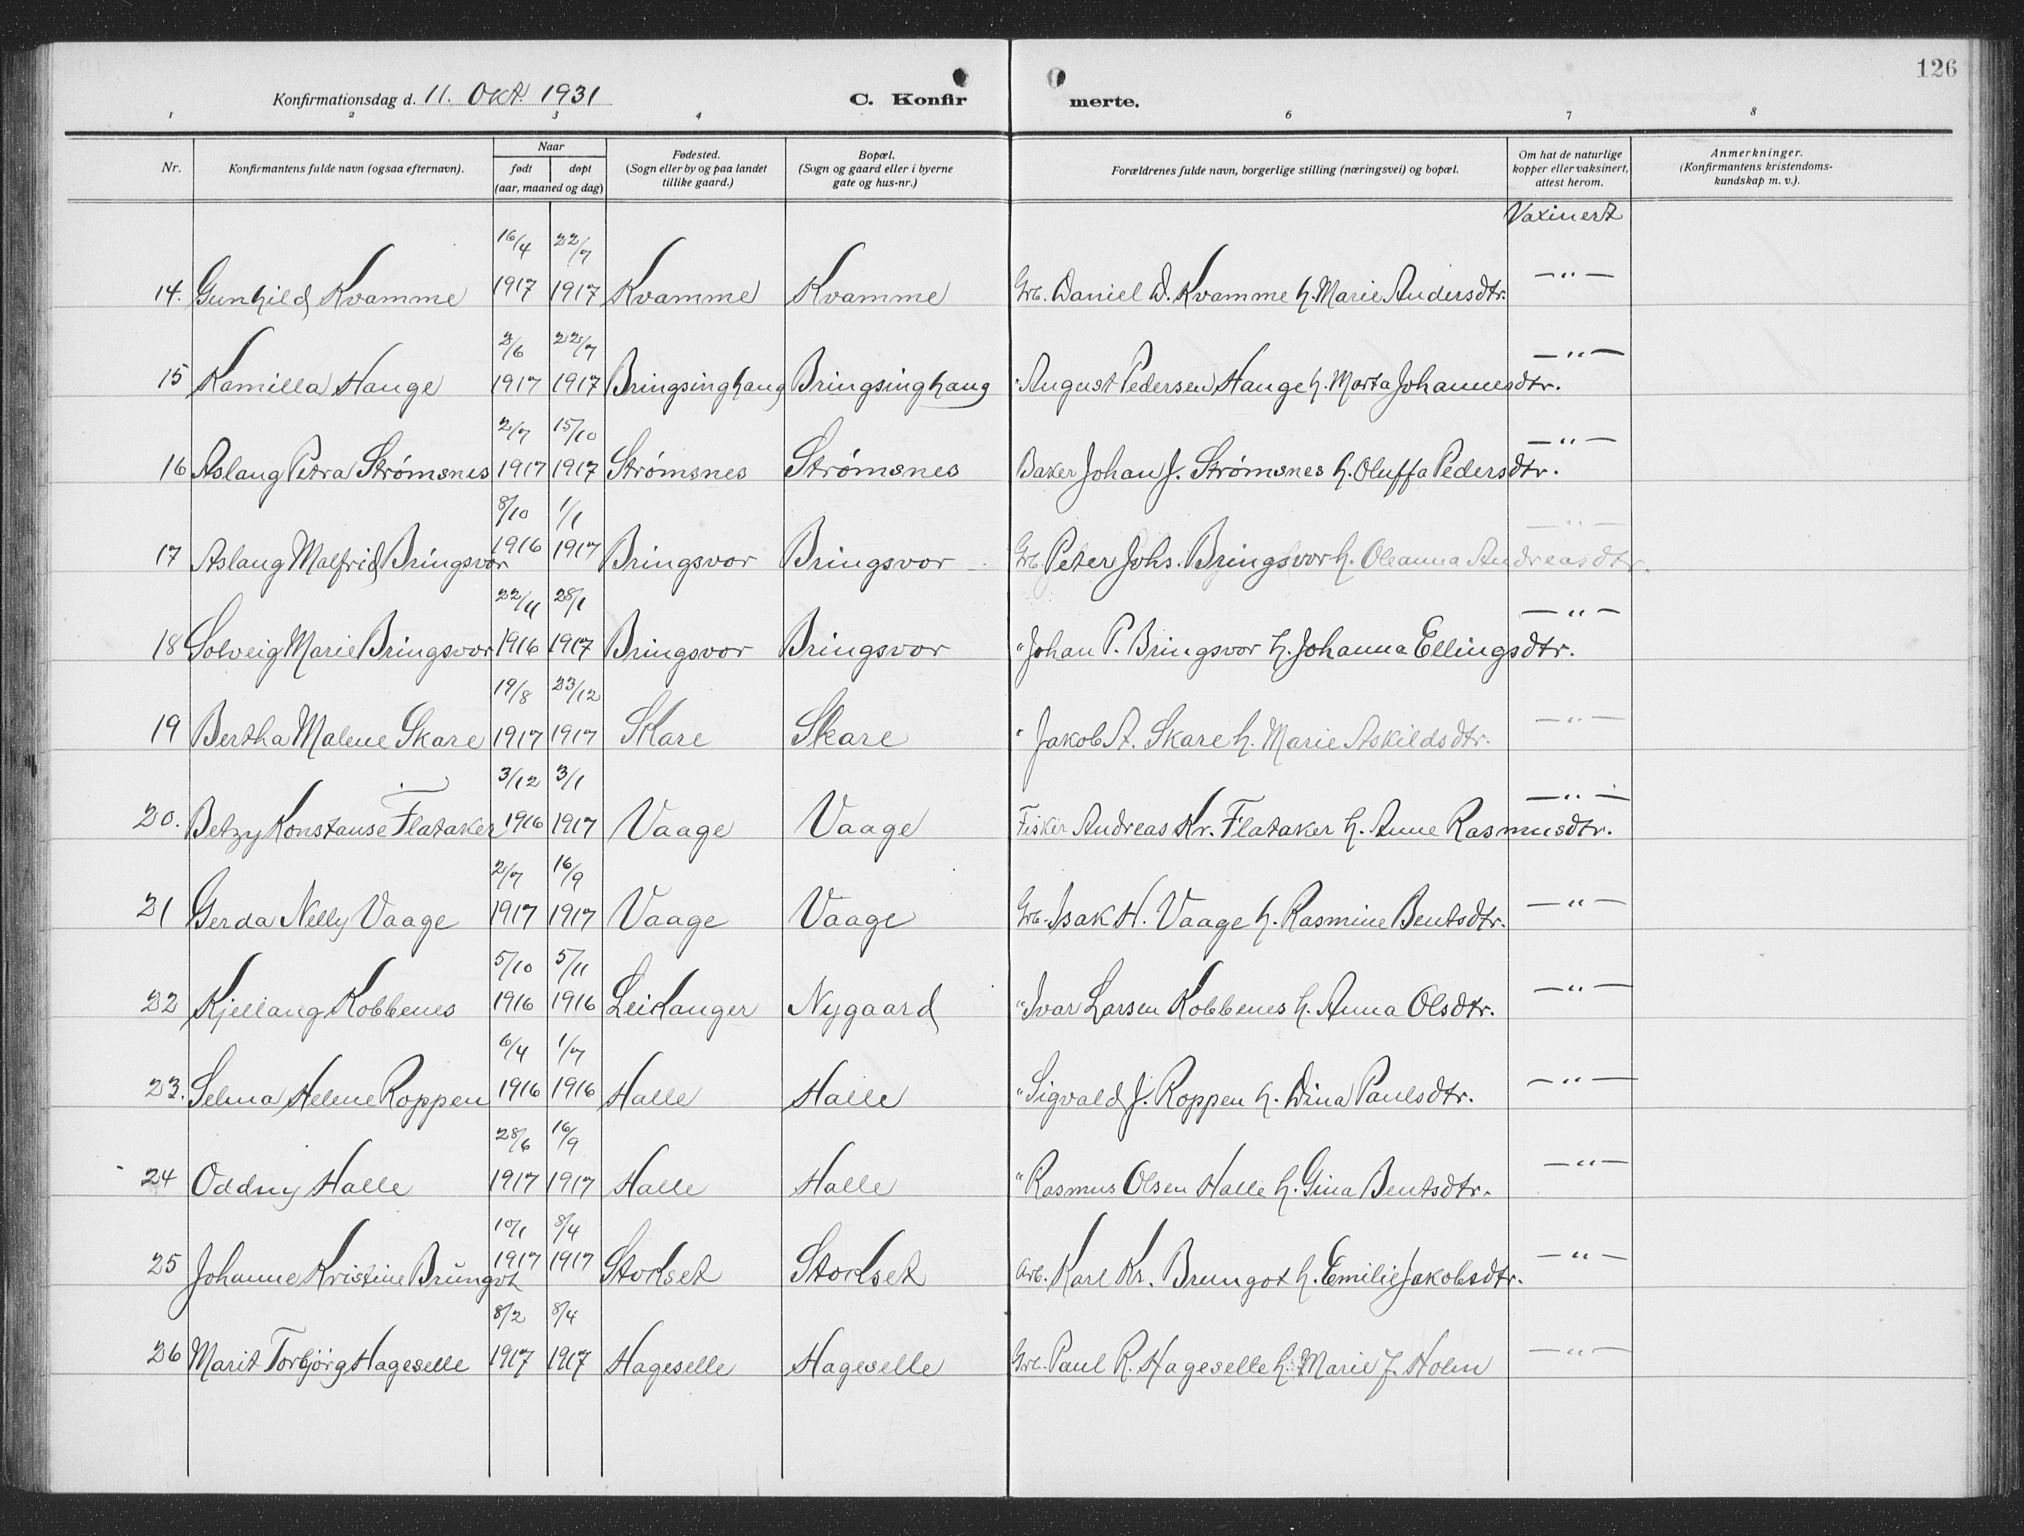 126
Konfirmationsdag d. 11. Okt. 1931 C. Konfir merte.
1 2 3 4 6 7 8
Nr. Konfirmantens fulde navn (ogsaa efternavn). Naar født døpt (aar, maaned og dag) Fødested. (Sogn eller by og paa landet tillike gaard.) Bopæl. (Sogn og gaard eller i byerne gate og hus-nr.) Forældrenes fulde navn, borgerlige stilling (næringsvei) og bopæl. Om hat de naturlige kopper eller vaksinert, attest herom. Anmerkninger. (Konfirmantens kristendomskundskap m. v.).
Vaxinert
16/4 22/7
14. Gunhild Kvamme 1917 1917 Kvamme Kvamme Grb. Daniel D. Kvamme h. Marie Andersdtr. —"—
2/6 22/7
15 Kamilla Hauge 1917 1917 Bringsinghaug Bringsinghaug " August Pedersen Hauge h. Marta Johannesdtr. —"—
2/7 15/10
16 Aslaug Petra Strømsnes 1917 1917 Strømsnes Strømsnes Baker Johan J. Strømsnes h. Oluffa Pedersdtr. —"—
8/10 1/1
17 Aslaug Malfrid Bringsvor 1916 1917 Bringsvor Bringsvor Grb. Peter Johs. Bringsvor h. Oleanna Andreasdtr. —"—
22/11 28/1
18 Solveig Marie Bringsvor 1916 1917 Bringsvor Bringsvor " Johan P. Bringsvor h. Johanna Ellingsdtr. —"—
19/8 23/12
19 Bertha Malene Skare 1917 1917 Skare Skare " Jakob A. Skare h. Marie Askildsdtr. —"—
3/12 3/1
20. Betzy Konstanse Flataker 1916 1917 Vaage Vaage Fisker Andreas Kr. Flataker h. Anne Rasmusdtr. —"—
2/7 16/9
21 Gerda Nelly Vaage 1917 1917 Vaage Vaage Grb. Isak H. Vaage h. Rasmine Bentsdtr. —"—
5/10 5/11
22 Kjellaug Kobbenes 1916 1916 Leikanger Nygaard " Ivar Larsen Kobbenes h. Anna Olsdtr. —"—
6/4 1/7
23. Selma Helene Roppen 1916 1916 Halle Halle " Sigvald J. Roppen h. Dina Paulsdtr. —"—
28/6 16/9
24 Oddny Halle 1917 1917 Halle Halle " Rasmus Olsen Halle h. Gina Bentsdtr. —"—
10/1 8/4
25 Johanne Kristine Brungot 1917 1917 Storlset Storlset Arb. Karl Kr. Brungot h. Emilie Jakobsdtr. —"—
8/2 8/4
26 Marit Torbjörg Hageselle 1917 1917 Hageselle Hageselle Grb. Paul R. Hageselle h. Marie J. Holm —"—